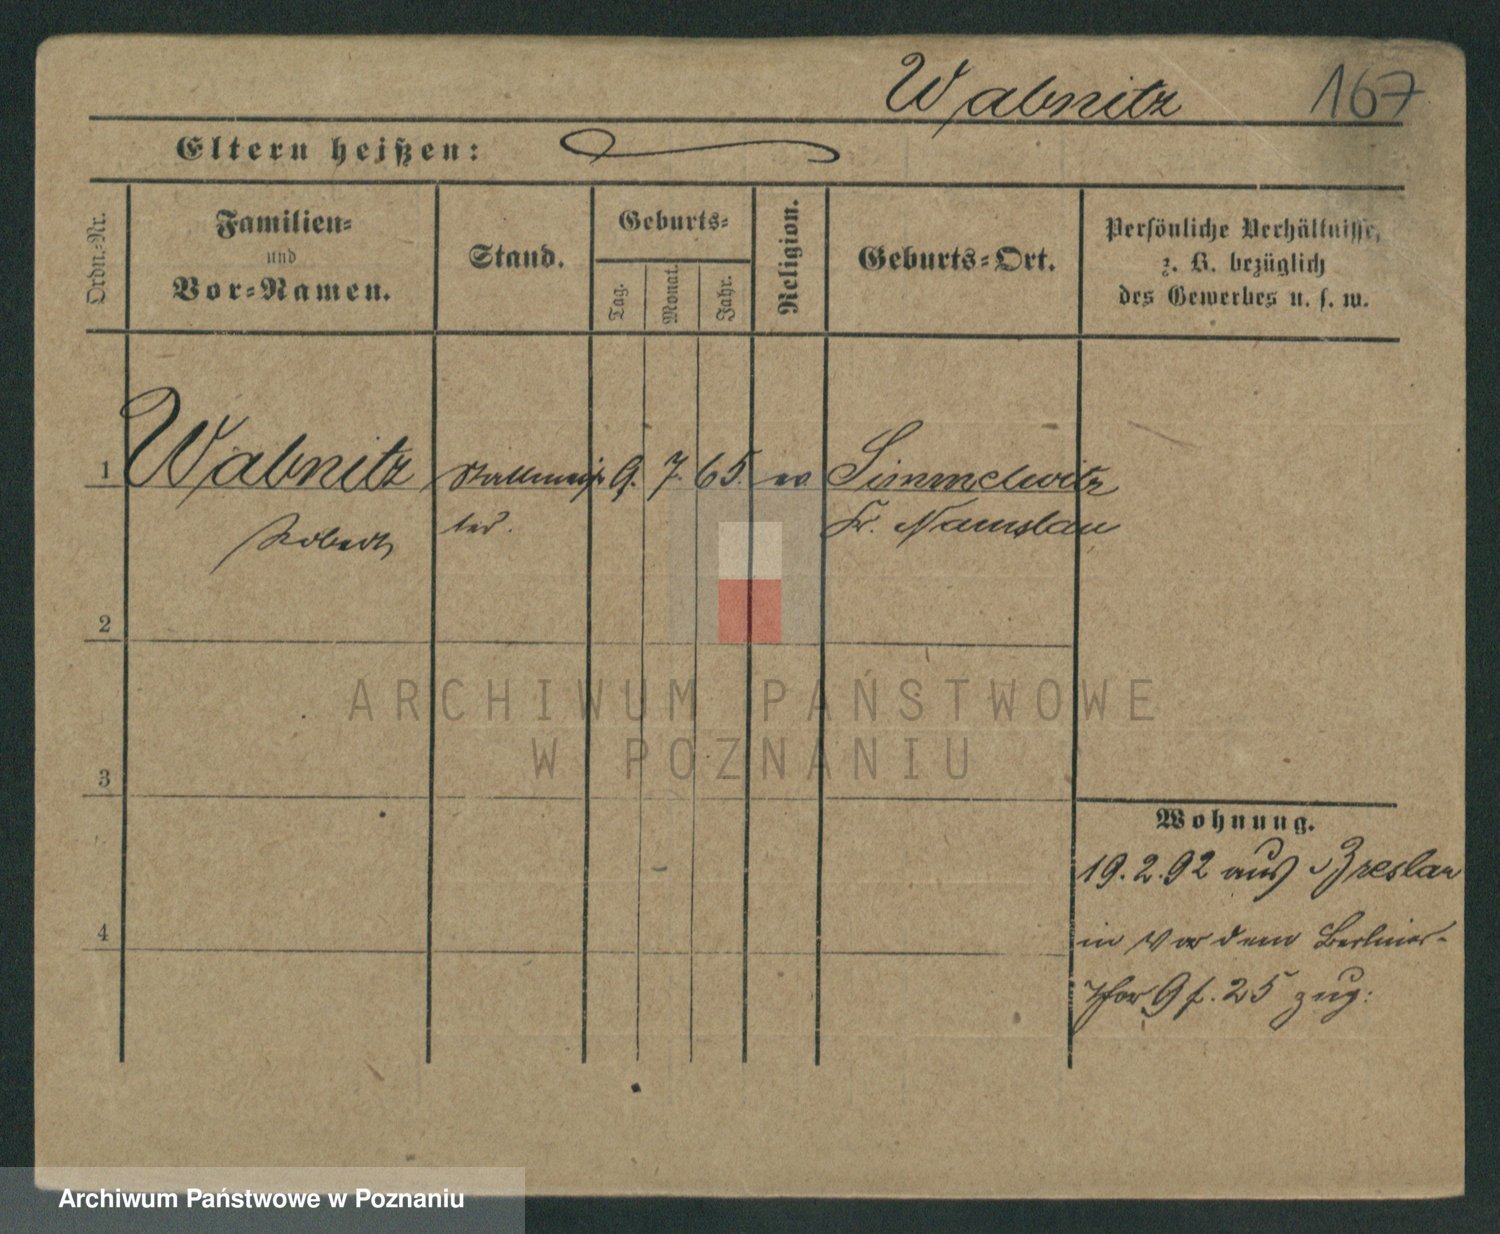 Wabnitz 167
Eltern heißen:
Ordn.=Nr.
Familien=
und
Vor=Namen.
Stand.
Geburts=
Tag.
Monat.
Jahr.
Religion.
Geburts=Ort.
Persönliche Verhältnisse,
z. B. bezüglich
des Gewerbes u. s. w.
1 Wabnitz Stallmeis 9. 7. 65. ev Simmelwitz
Robert ter. Kr. Namslau
2
3
4
Wohnung.
19.2.92 aus Breslau
in Vor dem Berliner-
Thor 25 zug:
ARCHIWUM PAŃSTWOWE
W POZNANIU
Archiwum Państwowe w Poznaniu